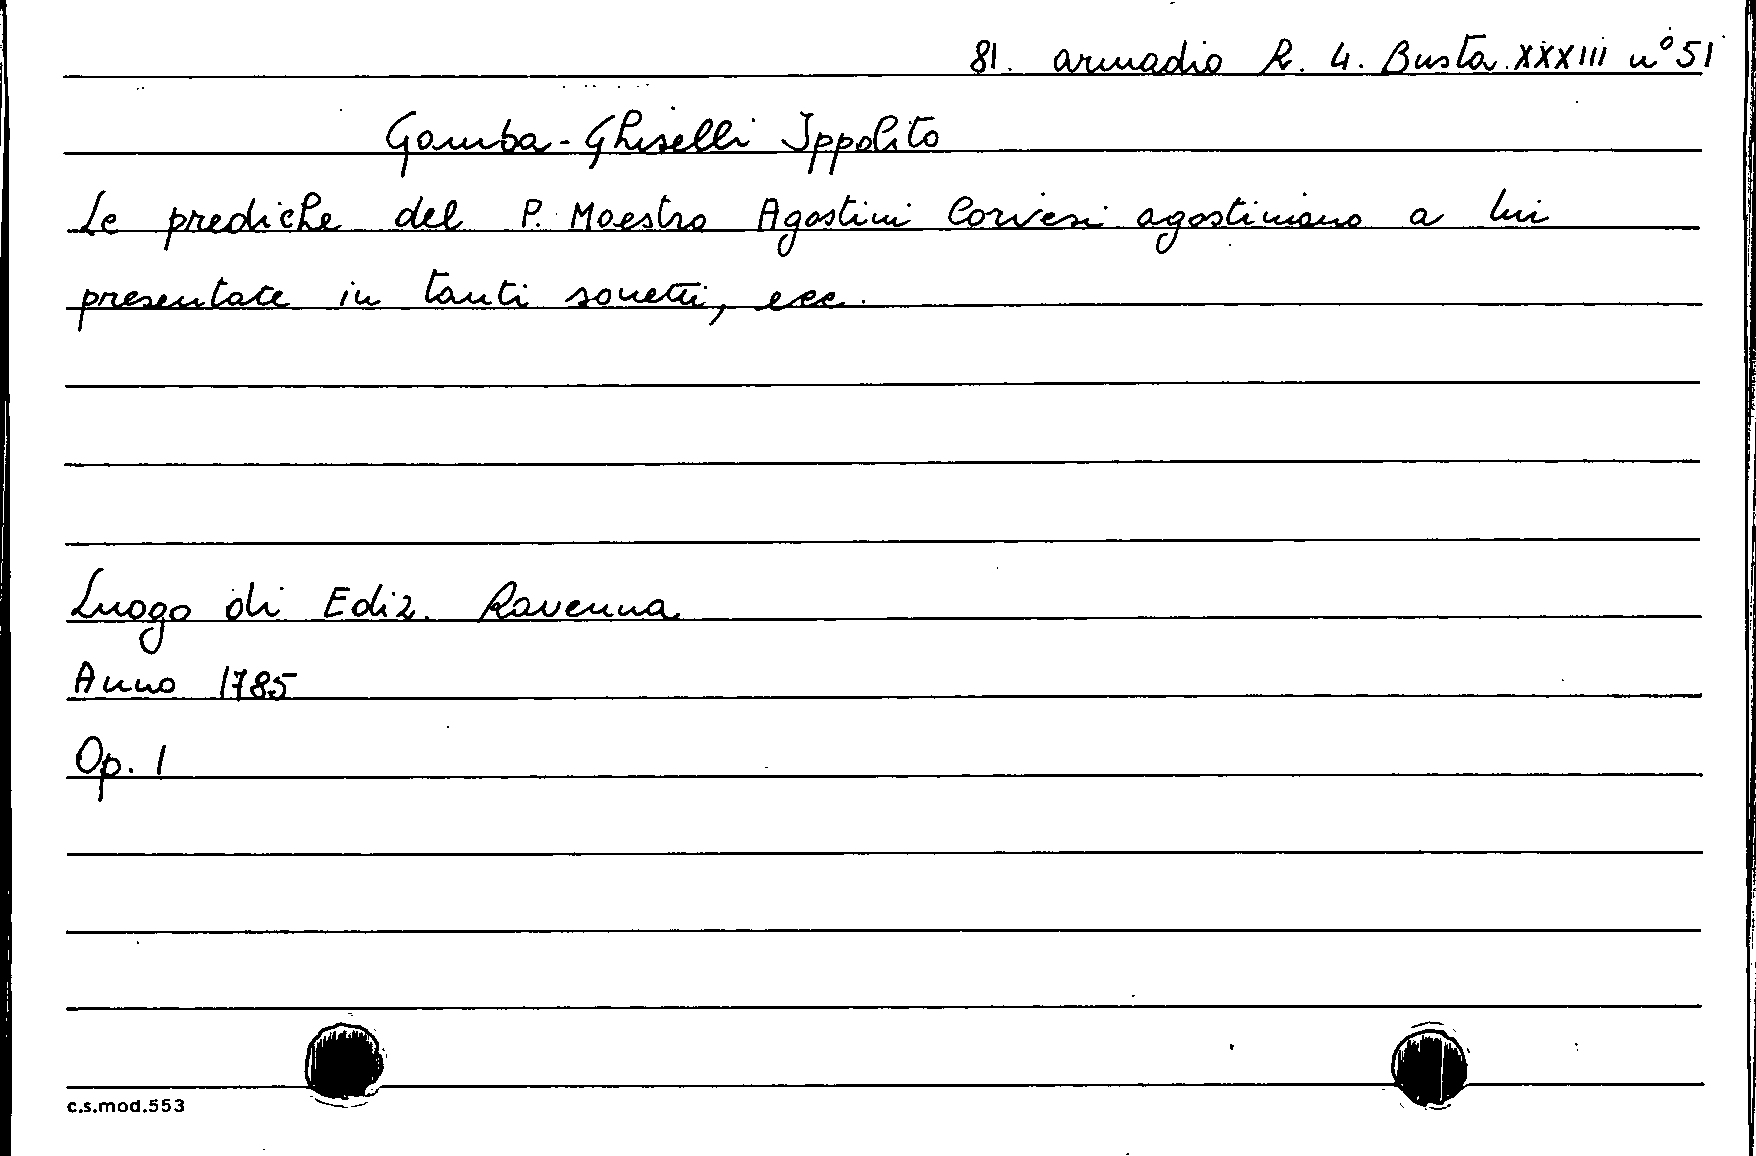 81. armadio R. 4. Busta XXXIII n° 51
Gamba-Ghiselli Ippolito
Le prediche del P. Maestro Agostini Corvesi agostiniano a lui
presentate in tanti sonetti, ecc.
Luogo di Ediz. Ravenna
Anno 1785
Op. 1
c.s.mod.553